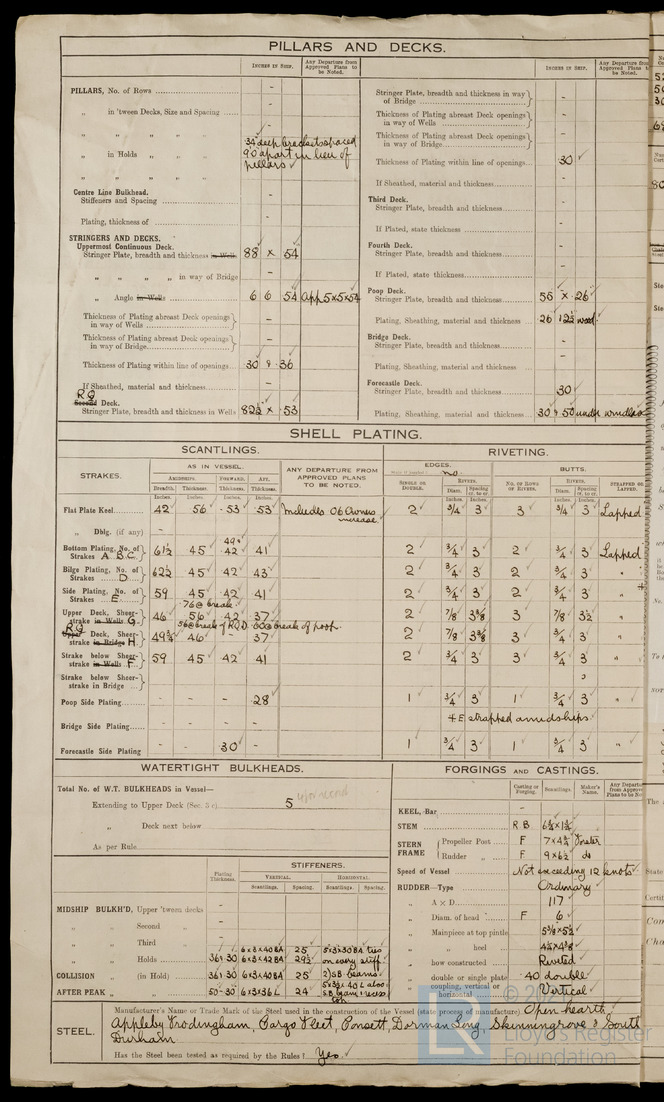 PILLARS AND DECKS.
INCHES IN SHIP.
Any Departure from Approved Plans to be Noted.
PILLARS, No. of Rows -
„ in 'tween Decks, Size and Spacing -
„ „ „ „
„ in Holds „ „ 34 deep brackets spaced 90 apart in lieu of pillars
„ „ „ „
Centre Line Bulkhead.
Stiffeners and Spacing -
Plating, thickness of -
STRINGERS AND DECKS.
Uppermost Continuous Deck.
Stringer Plate, breadth and thickness in Wells 88 x .54
„ „ „ „ in way of Bridge -
„ Angle in Wells 6 6 .54 App 5x5x54
Thickness of Plating abreast Deck openings in way of Wells -
Thickness of Plating abreast Deck openings in way of Bridge -
Thickness of Plating within line of openings .30 & .36
If Sheathed, material and thickness -
R.Q. Second Deck.
Stringer Plate, breadth and thickness in Wells 82½ x .53
INCHES IN SHIP.
Any Departure from Approved Plans to be Noted.
Stringer Plate, breadth and thickness in way of Bridge -
Thickness of Plating abreast Deck openings in way of Wells -
Thickness of Plating abreast Deck openings in way of Bridge -
Thickness of Plating within line of openings .30
If Sheathed, material and thickness -
Third Deck.
Stringer Plate, breadth and thickness -
If Plated, state thickness -
Fourth Deck.
Stringer Plate, breadth and thickness -
If Plated, state thickness -
Poop Deck.
Stringer Plate, breadth and thickness 56 x .26
Plating, Sheathing, material and thickness .26 & 2½ wood
Bridge Deck.
Stringer Plate, breadth and thickness -
Plating, Sheathing, material and thickness -
Forecastle Deck.
Stringer Plate, breadth and thickness .30
Plating, Sheathing, material and thickness .30 & .50 under windlass
SHELL PLATING.
SCANTLINGS.
RIVETING.
STRAKES.
AS IN VESSEL.
AMIDSHIPS. FORWARD. AFT.
Breadth. Thickness. Thickness. Thickness.
Inches. Inches. Inches. Inches.
ANY DEPARTURE FROM APPROVED PLANS TO BE NOTED.
EDGES.
no
SINGLE OR DOUBLE.
RIVETS.
Diam. Spacing cr. to cr.
Inches. Inches.
BUTTS.
NO. OF ROWS OF RIVETS.
RIVETS.
Diam. Spacing cr. to cr.
Inches. Inches.
STRAPPED OR LAPPED.
Flat Plate Keel 42 .56 .53 .53 Includes .06 Owners increase 2 3/4 3 3 3/4 3 Lapped
„ Dblg. (if any) -
Bottom Plating, No. of Strakes A.B.C. 61½ .45 .49 .42 .41 2 3/4 3 2 3/4 3 Lapped
Bilge Plating, No. of Strakes D. 62½ .45 .42 .43 2 3/4 3 2 3/4 3 „
Side Plating, No. of Strakes E. 59 .45 .42 .41 2 3/4 3 2 3/4 3 „
.76 @ break
Upper Deck, Sheerstrake in Wells G. 46 .56 .42 .37 2 7/8 3⅜ 3 7/8 3½ „
.56 @ break of R.Q.D. .60 @ break of poop
R.Q. Upper Deck, Sheerstrake in Bridge H 49¾ .46 - .37 2 7/8 3⅜ 3 3/4 3 „
Strake below Sheerstrake in Wells F. 59 .45 .42 .41 2 3/4 3 3 3/4 3 „
Strake below Sheerstrake in Bridge
Poop Side Plating - - - .28 1 3/4 3 1 3/4 3 „
+ E strapped amidships
Bridge Side Plating
Forecastle Side Plating - - .30 - 1 3/4 3 1 3/4 3 „
WATERTIGHT BULKHEADS.
Total No. of W.T. BULKHEADS in Vessel—
Extending to Upper Deck (Sec. 3 c) 5
„ Deck next below
As per Rule
Plating Thickness.
STIFFENERS.
VERTICAL. HORIZONTAL.
Scantlings. Spacing. Scantlings. Spacing.
MIDSHIP BULKH'D, Upper 'tween decks -
„ „ Second „ -
„ „ Third „ 6x3x.40 BA 25 5x3x.30 BA ties
„ „ Holds .36/.30 6x3x.42 BA 29½ on every stiff
COLLISION (in Hold) .36/.30 6x3x.40 BA 25 2) SB beams
AFTER PEAK „ .50-.30 6x3x.36 L 24
FORGINGS AND CASTINGS.
Casting or Forging. Scantlings. Maker's Name. Any Departure from Approved Plans to be Noted
KEEL, Bar -
STEM R.B 6¾x1¾
STERN FRAME Propeller Post F 7x4¾ Forster
Rudder „ F 9x6½ do
Speed of Vessel Not exceeding 12 knots
RUDDER—Type Ordinary
„ A x D 117
„ Diam. of head F 6
„ Mainpiece at top pintle
„ „ heel
„ how constructed Riveted
„ double or single plate .40 double
„ coupling, vertical or horizontal Vertical
STEEL.
Manufacturer's Name or Trade Mark of the Steel used in the construction of the Vessel (state process of manufacture) Open hearth
Appleby Frodingham, Cargo Fleet, Consett, Dorman Long, Skinningrove & South
Durham
Has the Steel been tested as required by the Rules? Yes
Lloyd's Register
Foundation